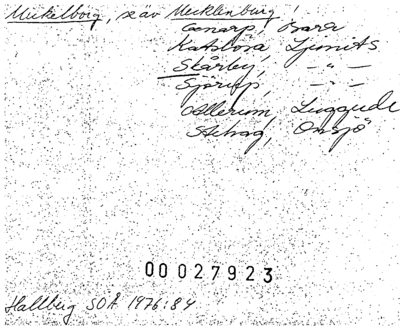 Mickelborg, se äv Mecklenburg!
Genarp, Bara
Katslösa Ljunits
Skårby, -"-
Sjörup, -"-
Allerum, Luggude
Stehag, Onsjö
00 027923
Hallberg SOÅ 1976:84